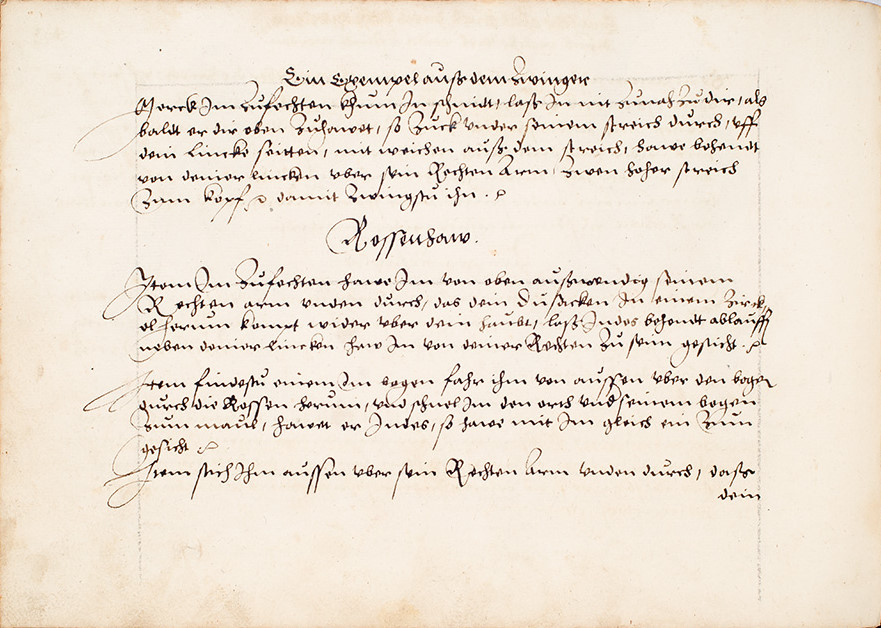 Ein Exempel auß dem Zwinger
Merck Im Zufechten khum In schnidt, laß In nit Zunah Zu dir, als
baldt er dir oben Zuhawet, so Zuck vnder seinem streich durch, vff
dein Lincke seitten, mit weichen auß dem streich, hawe behendt
von deiner lincken vber sein Rechten Arm, Zwen hoher streich
Zum kopf damit Zwingstu ihn.
Rossenhaw.
Item Im Zufechten hawe Im von oben außwendig seinem
Rechten arm vnden durch, das dein Dusacken In einem Zirck
el herum kompt wider vber dein haubt, laß Indes behendt ablauffē
neben deiner Lincken haw In von deiner Rechten Zu sein gesicht.
Item findestu einem Im bogen fahr ihm von aussen vber den bogen
durch die Rossen herum, vnd schnel Im den orth vnd seinem bogen
Zum maul, hawet er Indes, so hawe mit Im gleich ein Zum
gesicht
Item stich Ihm aussen vber sein Rechten Arm vnden durch, daß
dein